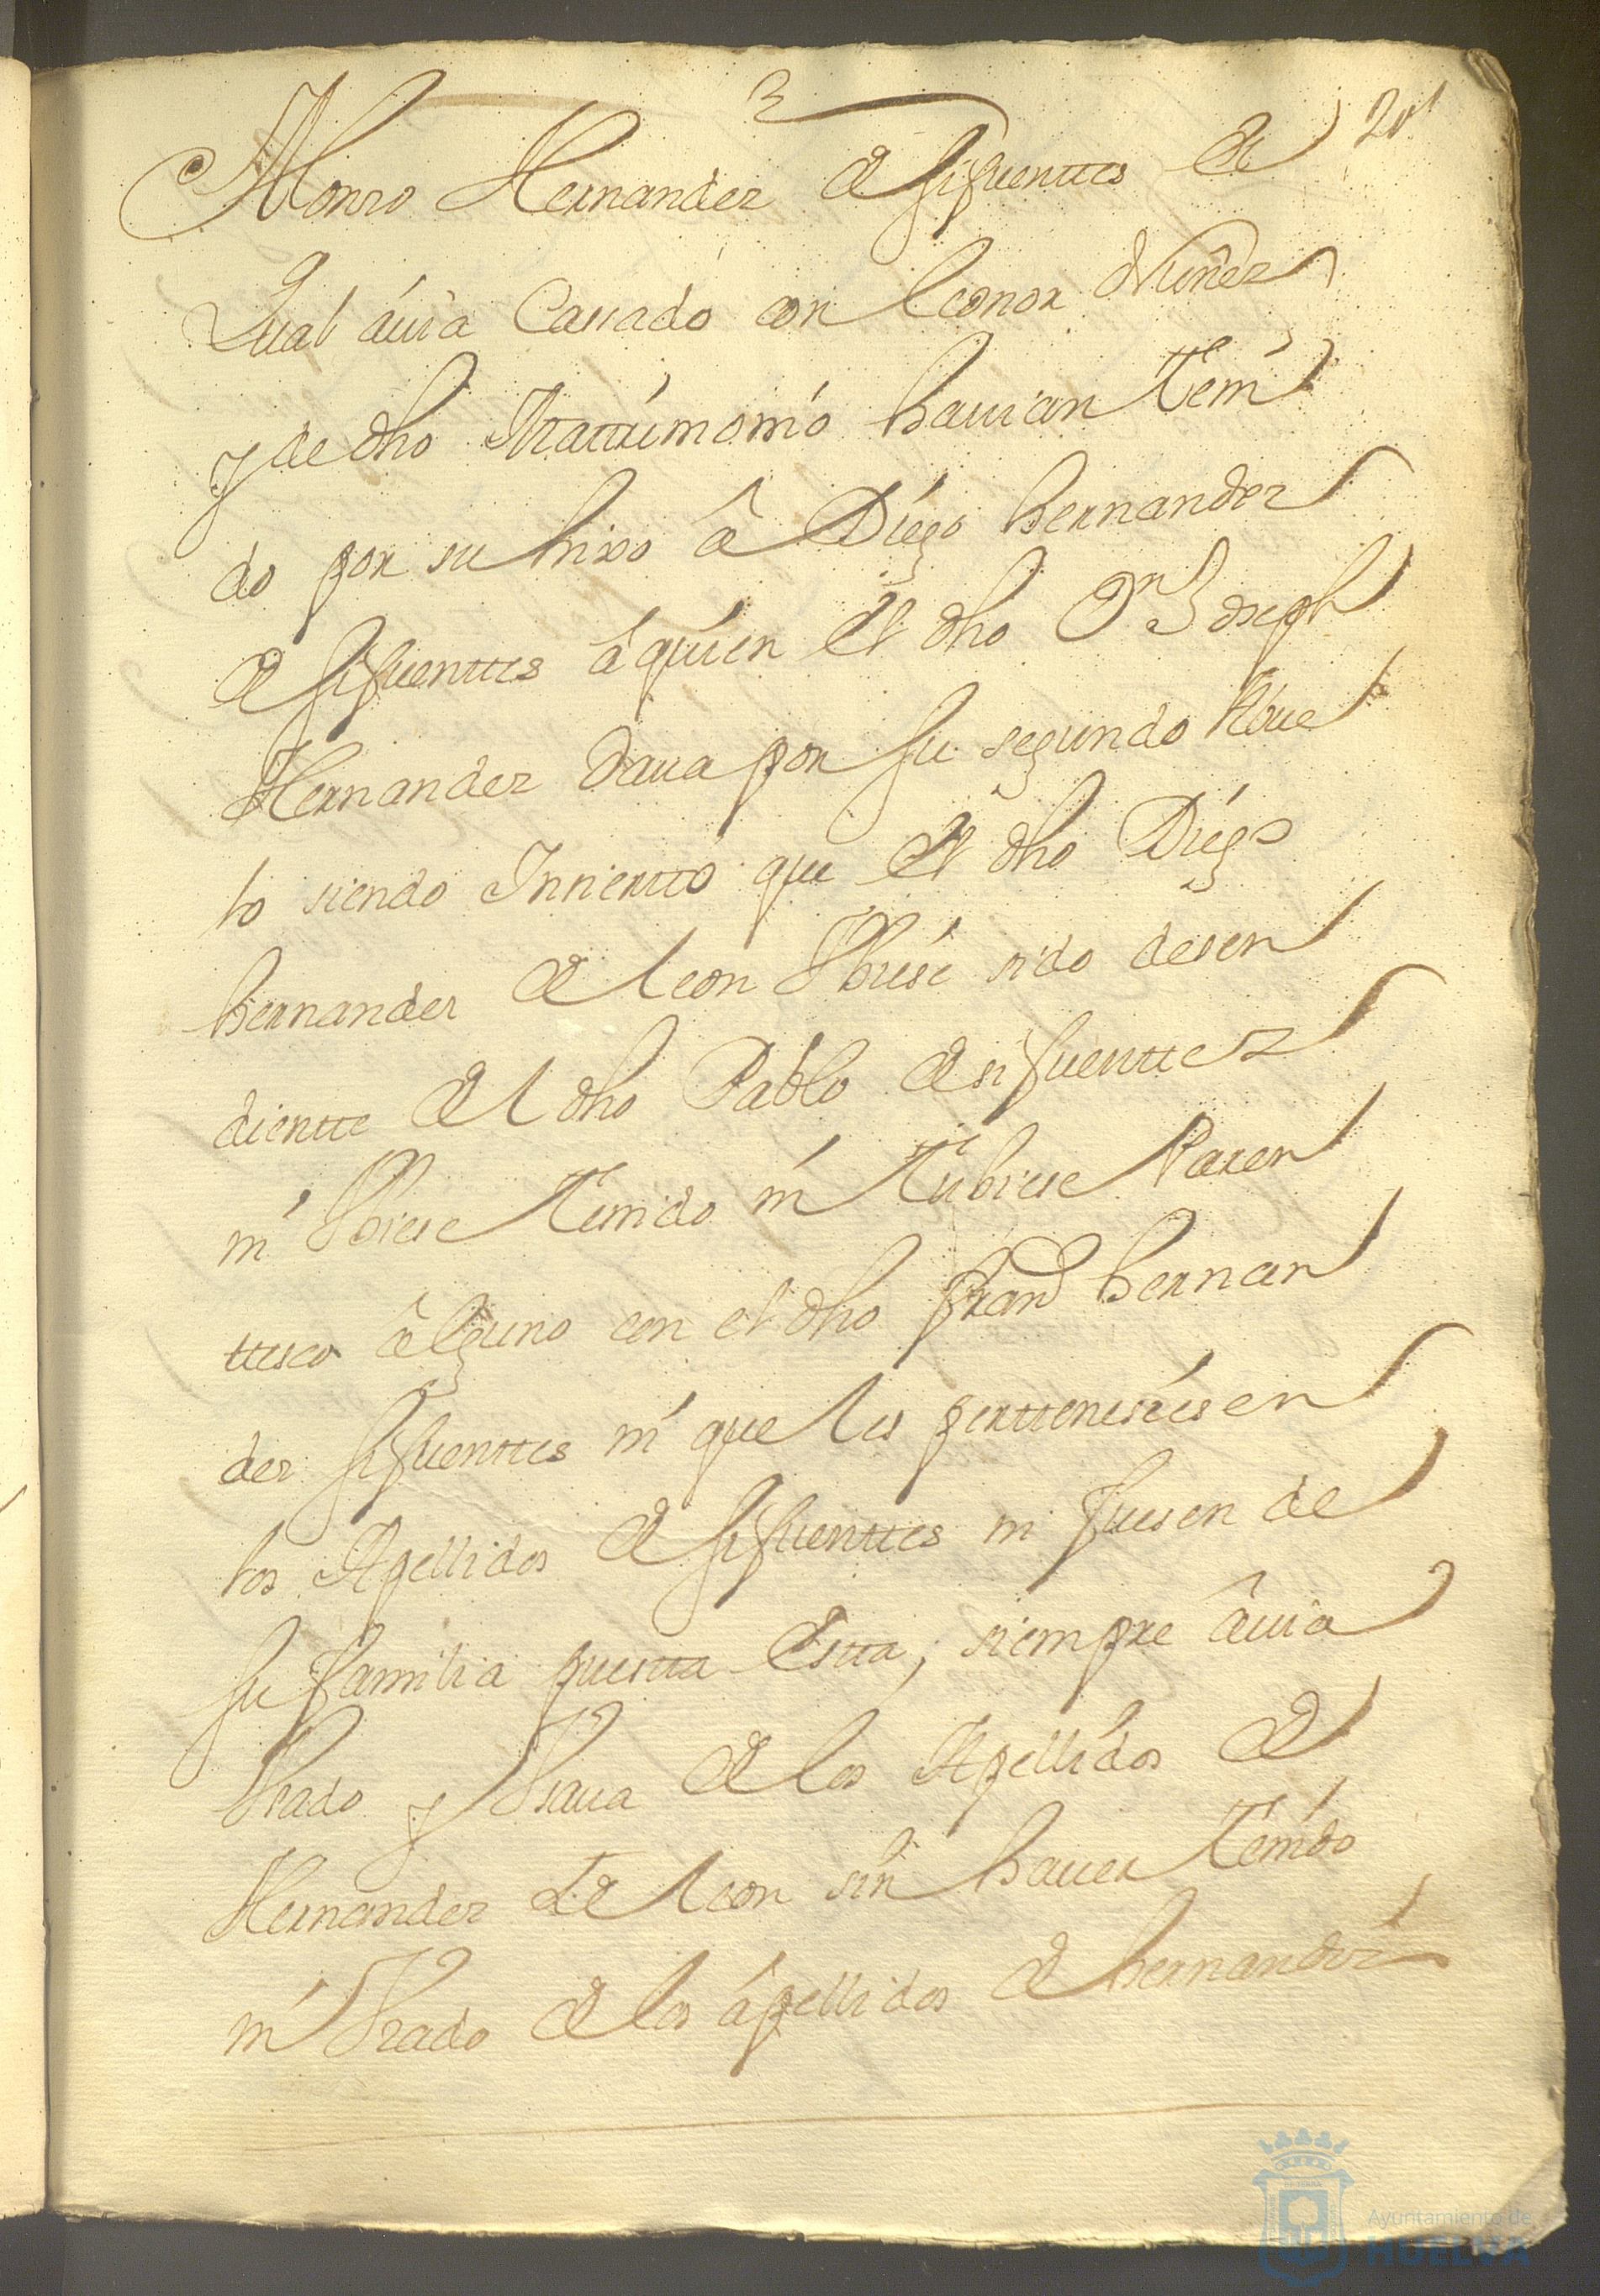 201
Alonso Hernandez de sifuenttes el
Qual auia Cassado con leonor Nuñez
y de dho Mattrimonio hauian teni
do por su hixo â Diego hernandez
de sifuenttes â quien el dho Dn Joseph
Hernandez daua por su segundo Abue
lo siendo Inciertto que el dho Diego
hernandez de leon Vbiese sido desen
dientte del dho Pablo de sifuenttez
ni Vbiese tenido ni tubiese Paren
ttesco âlguno con el dho fran.co hernan
dez sifuenttes ni que les perttenesiesen
los Apellidos de sifuenttes ni fuesen de
su familia puestta Estta, siempre âuia
Vsado y Vsaua de los Apellidos de
Hernandez de leon sin hauer tenido
ni Vsado de los âpellidos de hernandez
Ayuntamiento de
HUELVA